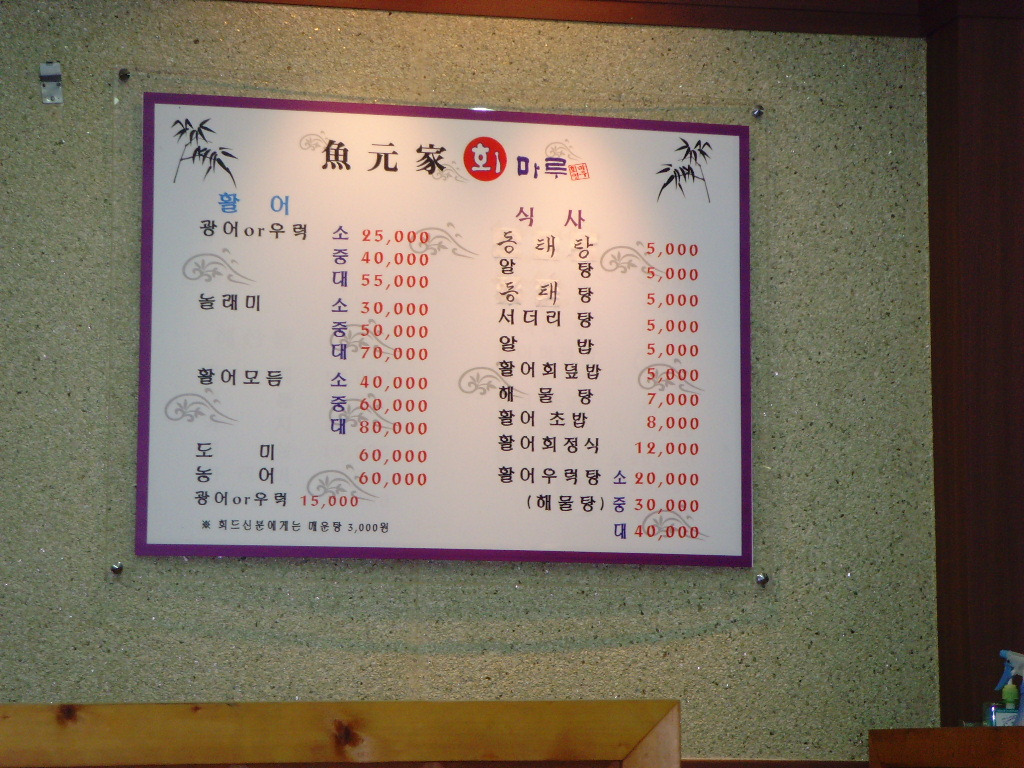 魚元家 회 마루
활 어
광어or우럭 소 25,000
중 40,000
대 55,000
놀래미 소 30,000
중 50,000
대 70,000
활어모듬 소 40,000
중 60,000
대 80,000
도 미 60,000
농 어 60,000
광어or우럭 15,000
※ 회드신분에게는 매운탕 3,000원
식 사
동태탕 5,000
알 탕 5,000
동태탕 5,000
서더리탕 5,000
알 밥 5,000
활어회덮밥 5,000
해물탕 7,000
활어 초밥 8,000
활어회정식 12,000
활어우럭탕 소 20,000
(해물탕) 중 30,000
대 40,000